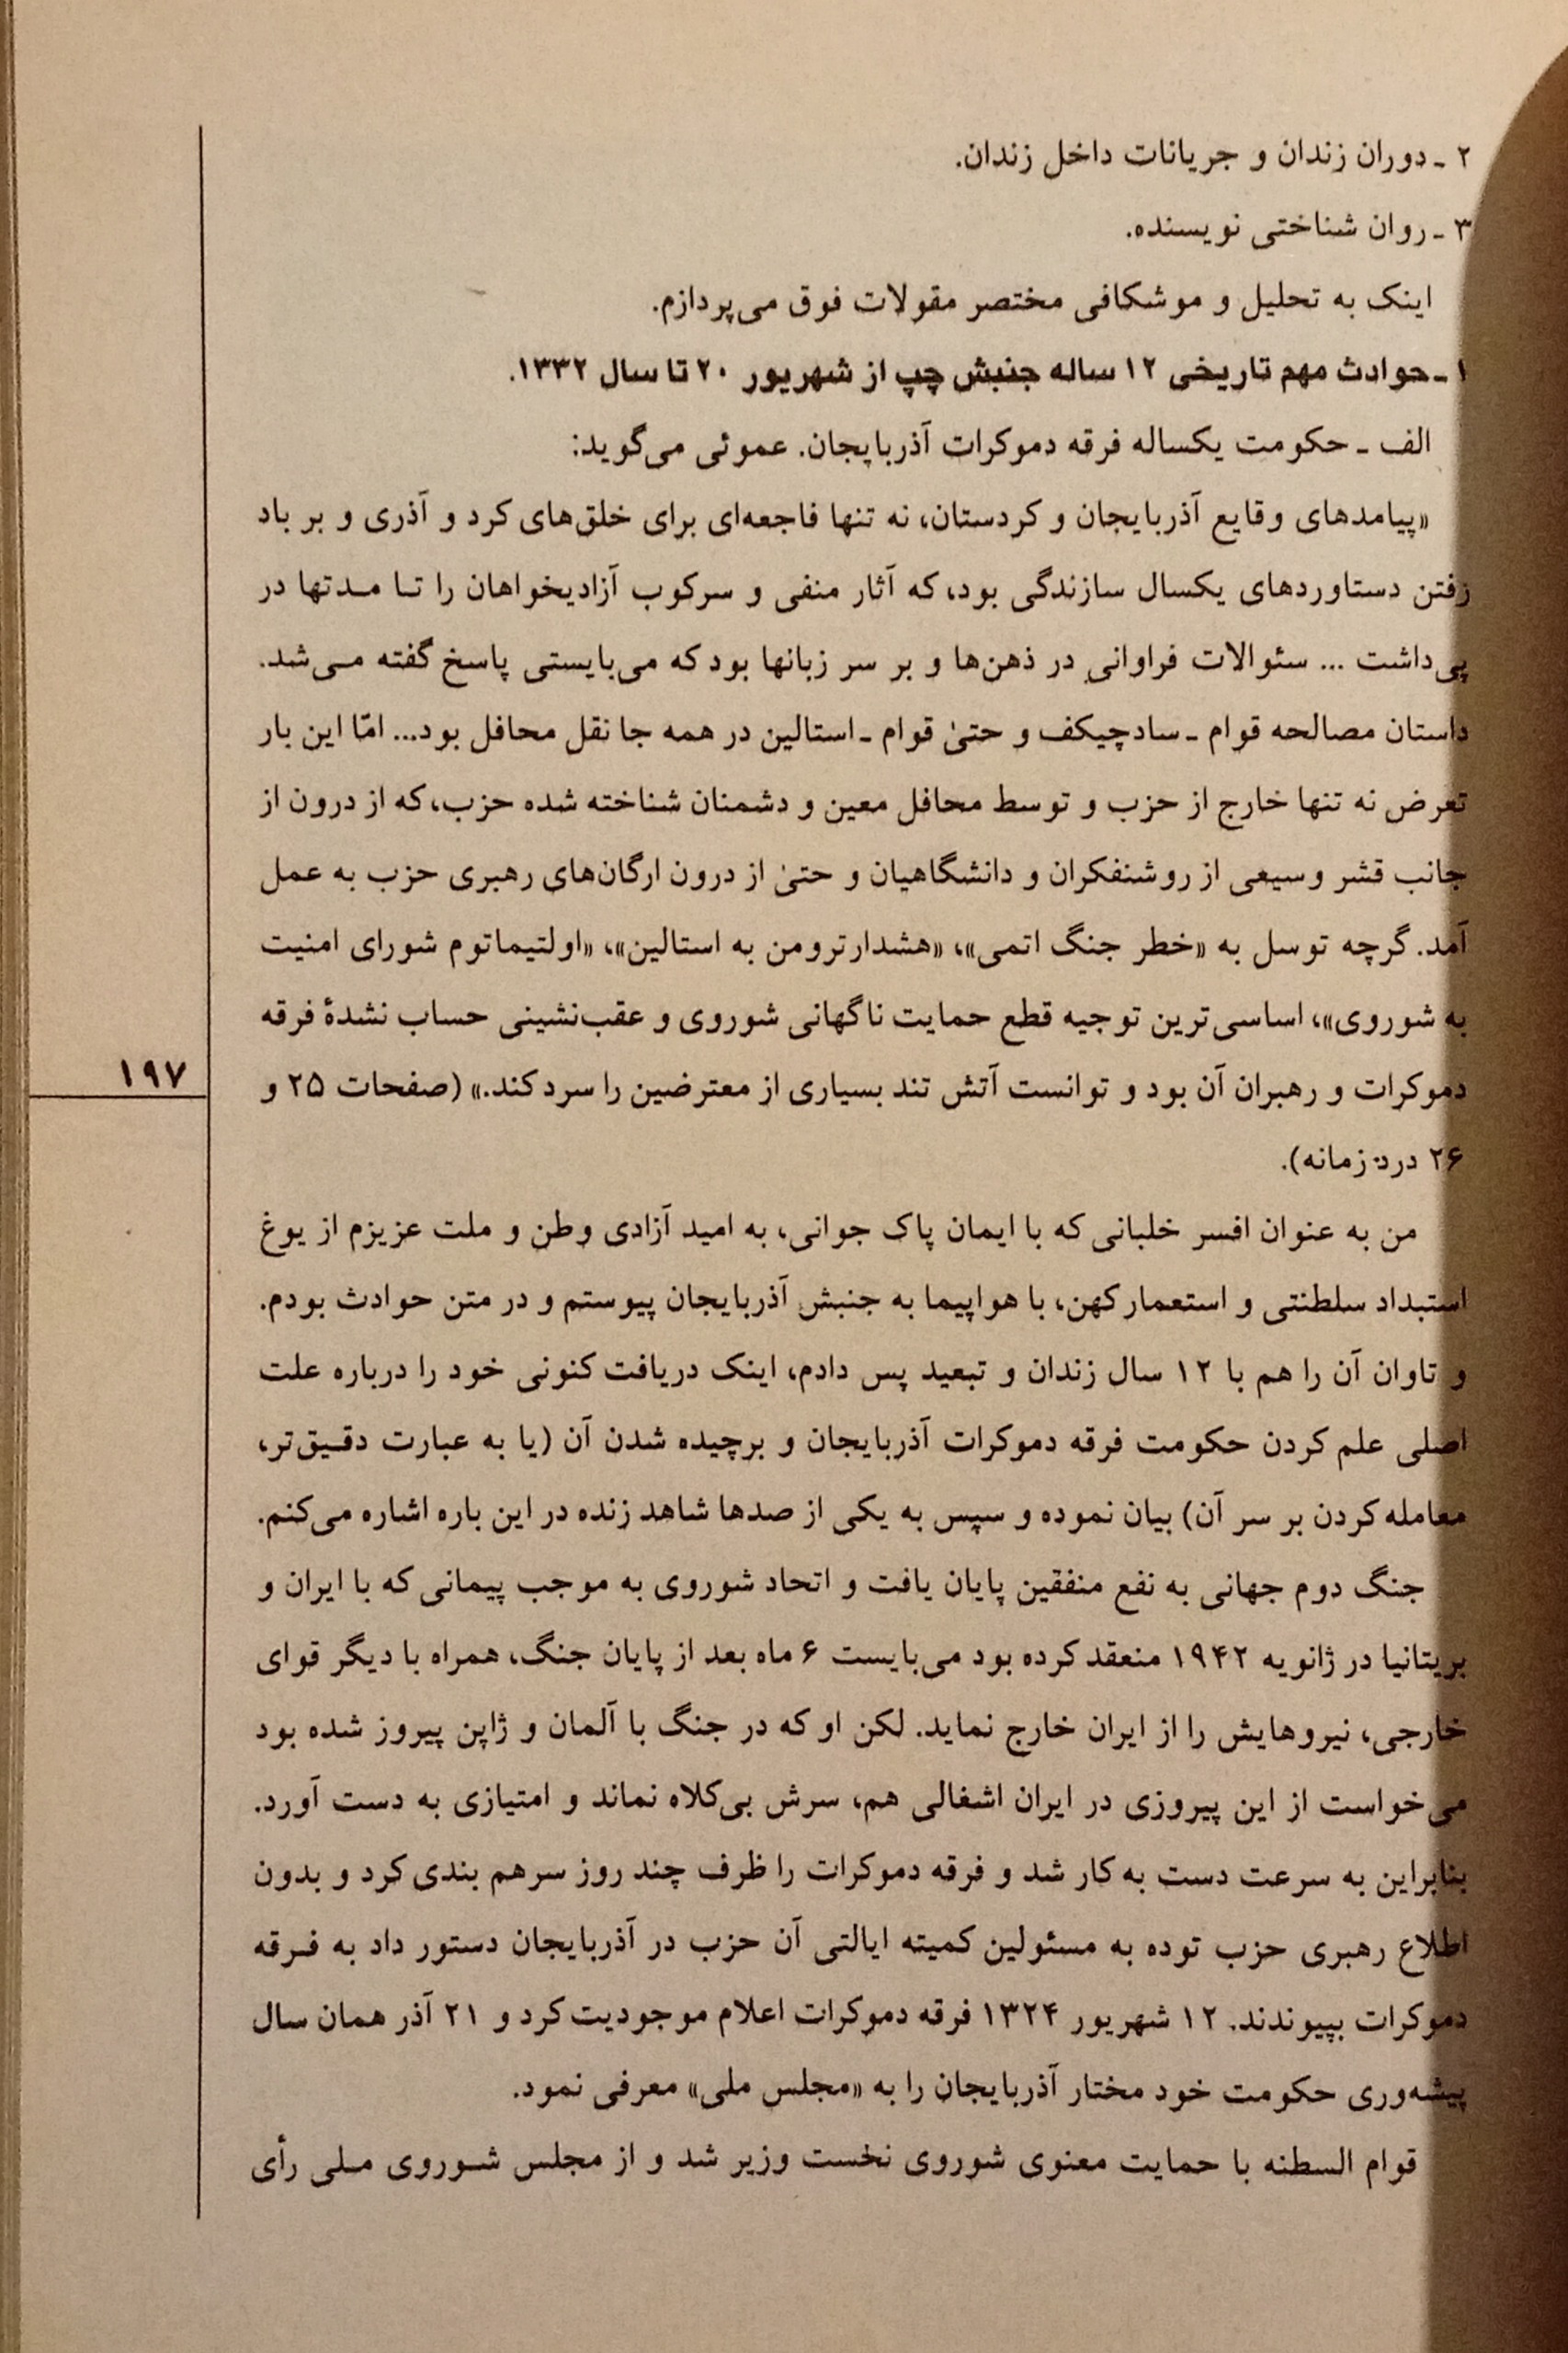 ۲ ـ دوران زندان و جریانات داخل زندان.
۳ ـ روان شناختی نویسنده.
اینک به تحلیل و موشکافی مختصر مقولات فوق می‌پردازم.
۱ ـ حوادث مهم تاریخی ۱۲ ساله جنبش چپ از شهریور ۲۰ تا سال ۱۳۳۲.
الف ـ حکومت یکساله فرقه دموکرات آذربایجان. عموئی می‌گوید:
«پیامدهای وقایع آذربایجان و کردستان، نه تنها فاجعه‌ای برای خلق‌های کرد و آذری و بر باد
رفتن دستاوردهای یکسال سازندگی بود، که آثار منفی و سرکوب آزادیخواهان را تا مدتها در
پی‌داشت ... سئوالات فراوانی در ذهن‌ها و بر سر زبانها بود که می‌بایستی پاسخ گفته می‌شد.
داستان مصالحه قوام ـ سادچیکف و حتیٰ قوام ـ استالین در همه جا نقل محافل بود... امّا این بار
تعرض نه تنها خارج از حزب و توسط محافل معین و دشمنان شناخته شده حزب، که از درون از
جانب قشر وسیعی از روشنفکران و دانشگاهیان و حتیٰ از درون ارگان‌های رهبری حزب به عمل
آمد. گرچه توسل به «خطر جنگ اتمی»، «هشدار ترومن به استالین»، «اولتیماتوم شورای امنیت
به شوروی»، اساسی‌ترین توجیه قطع حمایت ناگهانی شوروی و عقب‌نشینی حساب نشدهٔ فرقه
دموکرات و رهبران آن بود و توانست آتش تند بسیاری از معترضین را سرد کند.» (صفحات ۲۵ و
۲۶ درد زمانه).
۱۹۷
من به عنوان افسر خلبانی که با ایمان پاک جوانی، به امید آزادی وطن و ملت عزیزم از یوغ
استبداد سلطنتی و استعمار کهن، با هواپیما به جنبش آذربایجان پیوستم و در متن حوادث بودم.
و تاوان آن را هم با ۱۲ سال زندان و تبعید پس دادم، اینک دریافت کنونی خود را درباره علت
اصلی علم کردن حکومت فرقه دموکرات آذربایجان و برچیده شدن آن (یا به عبارت دقیق‌تر،
معامله کردن بر سر آن) بیان نموده و سپس به یکی از صدها شاهد زنده در این باره اشاره می‌کنم.
جنگ دوم جهانی به نفع منفقین پایان یافت و اتحاد شوروی به موجب پیمانی که با ایران و
بریتانیا در ژانویه ۱۹۴۲ منعقد کرده بود می‌بایست ۶ ماه بعد از پایان جنگ، همراه با دیگر قوای
خارجی، نیروهایش را از ایران خارج نماید. لکن او که در جنگ با آلمان و ژاپن پیروز شده بود
می‌خواست از این پیروزی در ایران اشغالی هم، سرش بی‌کلاه نماند و امتیازی به دست آورد.
بنابراین به سرعت دست به کار شد و فرقه دموکرات را ظرف چند روز سرهم بندی کرد و بدون
اطلاع رهبری حزب توده به مسئولین کمیته ایالتی آن حزب در آذربایجان دستور داد به فرقه
دموکرات بپیوندند. ۱۲ شهریور ۱۳۲۴ فرقه دموکرات اعلام موجودیت کرد و ۲۱ آذر همان سال
پیشه‌وری حکومت خود مختار آذربایجان را به «مجلس ملی» معرفی نمود.
قوام السطنه با حمایت معنوی شوروی نخست وزیر شد و از مجلس شوروی ملی رأی